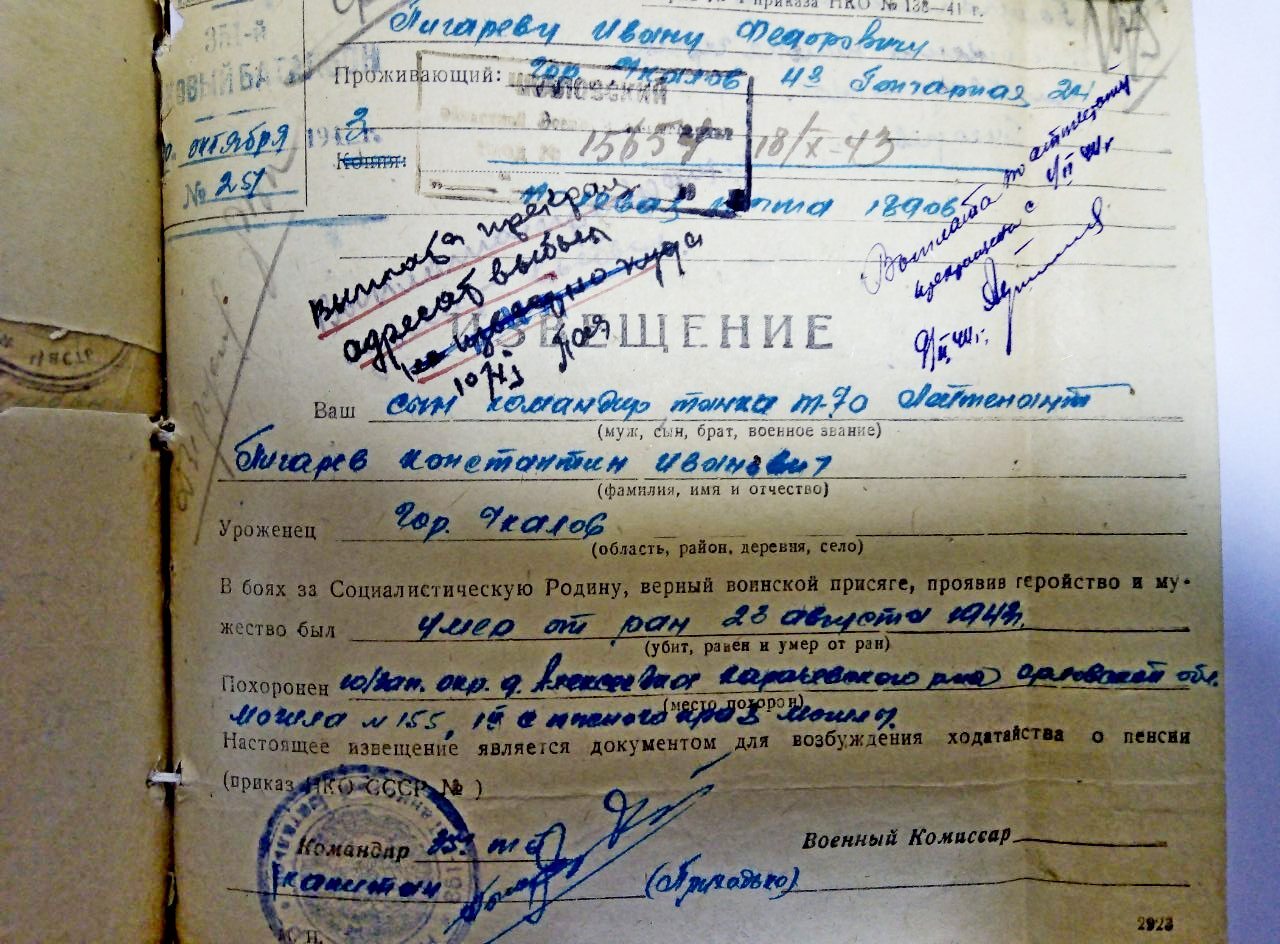 приказа НКО № 138—41 г.
Пигареву Ивану Федоровичу
351-й
Проживающий: Гор. Чкалов 4я Гончарная 24
ЧКАЛОВСКИЙ
октября 194 г. 3
15654 18/X-43
Копия:
№ 251
почта 1890
Выплата прекращ
адресат выбыл
не известно куда
10/XI
Выплата по аттестату
прекращена с 1/II 44 г.
9/II 44 г.
ИЗВЕЩЕНИЕ
Ваш сын командир танка Т-70 Лейтенант
(муж, сын, брат, военное звание)
Пигарев Константин Иванович
(фамилия, имя и отчество)
Уроженец Гор. Чкалов
(область, район, деревня, село)
В боях за Социалистическую Родину, верный воинской присяге, проявив геройство и му-
жество был умер от ран 23 августа 1943г.
(убит, ранен и умер от ран)
Похоронен ю/зап. окр. д. Карачевского р-на Орловской обл.
(место похорон)
могила N 155, с южного края могилы.
Настоящее извещение является документом для возбуждения ходатайства о пенсии
(приказ НКО СССР № )
Командир 351 тб
Военный Комиссар
капитан (Приходько)
М. П.
2923